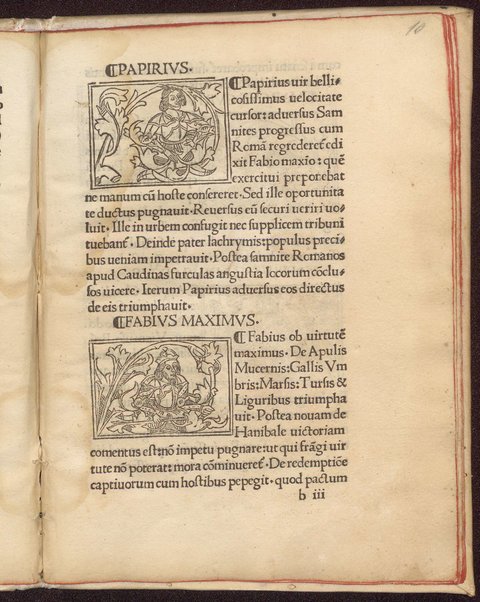 10
¶PAPIRIVS.
¶Papirius uir belli-
cosissimus uelocitate
cursor: aduersus Sam
nites progressus cum
Romã regrederet̃ edi
xit Fabio maxĩo: quẽ
exercitui preponebat
ne manum cũ hoste consereret. Sed ille oportunita
te ductus pugnauit. Reuersus eũ securi ueriri uo-
luit. Ille in urbem confugit nec supplicem tribuni
tuebant̃. Deinde pater lachrymis: populus preci
bus ueniam impetrauit. Postea samnite Romanos
apud Caudinas furculas angustia locorum cõclu-
sos uicere. Iterum Papirius aduersus eos directus
de eis triumphauit.
¶FABIVS MAXIMVS.
¶Fabius ob uirtutẽ
maximus. De Apulis
Mucernis: Gallis Vm
bris: Marsis: Tursis &
Liguribus triumpha
uit. Postea nouam de
Hanibale uictoriam
comentus est: nõ impetu pugnare: ut qui frãgi uir
tute nõ poterat: mora cõminueret̃. De redemptiõe
captiuorum cum hostibus pepegit. quod pactum
b iii